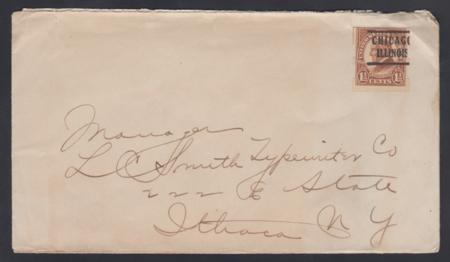 CHICAGO
ILLINOIS
1½ CENTS 1½
Manager
L C Smith Typewriter Co
222 E State
Ithaca N Y